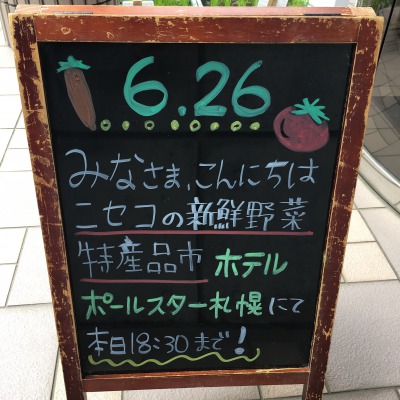 6.26
みなさま、こんにちは
ニセコの新鮮野菜
特産品市 ホテル
ポールスター札幌にて
本日18:30まで!